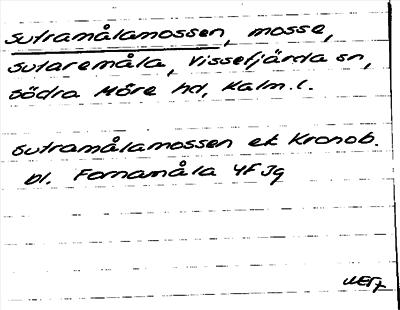 Sutramålamossen, mosse,
Sutaremåla, Vissefjärda sn,
Södra Möre hd, Kalm. l.
Sutramålamossen ek Kronob.
bl. Fornamåla 4F Jg